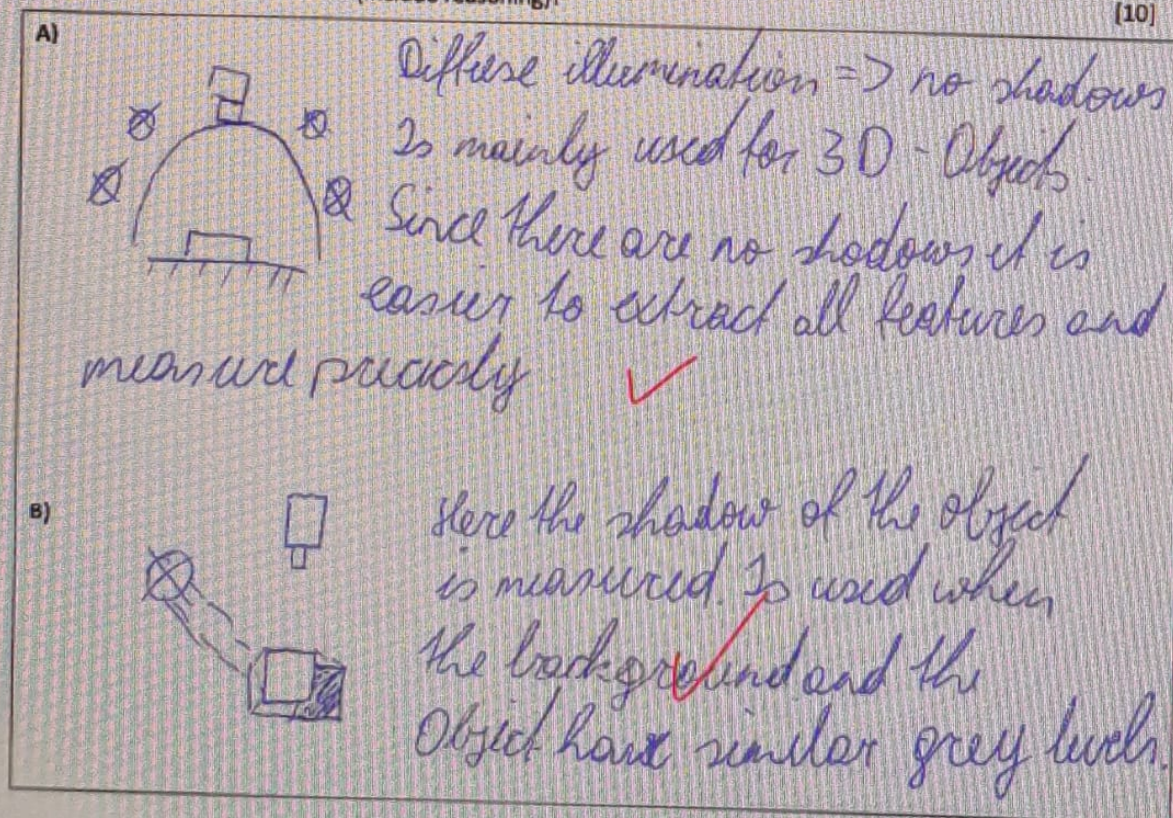 [10]
A)
Diffuse illumination => no shadows
Is mainly used for 3D - Objects.
Since there are no shadows it is
easier to extract all features and
measure precisely
B)
Here the shadow of the object
is measured. Is used when
the background and the
Object have similar grey levels.